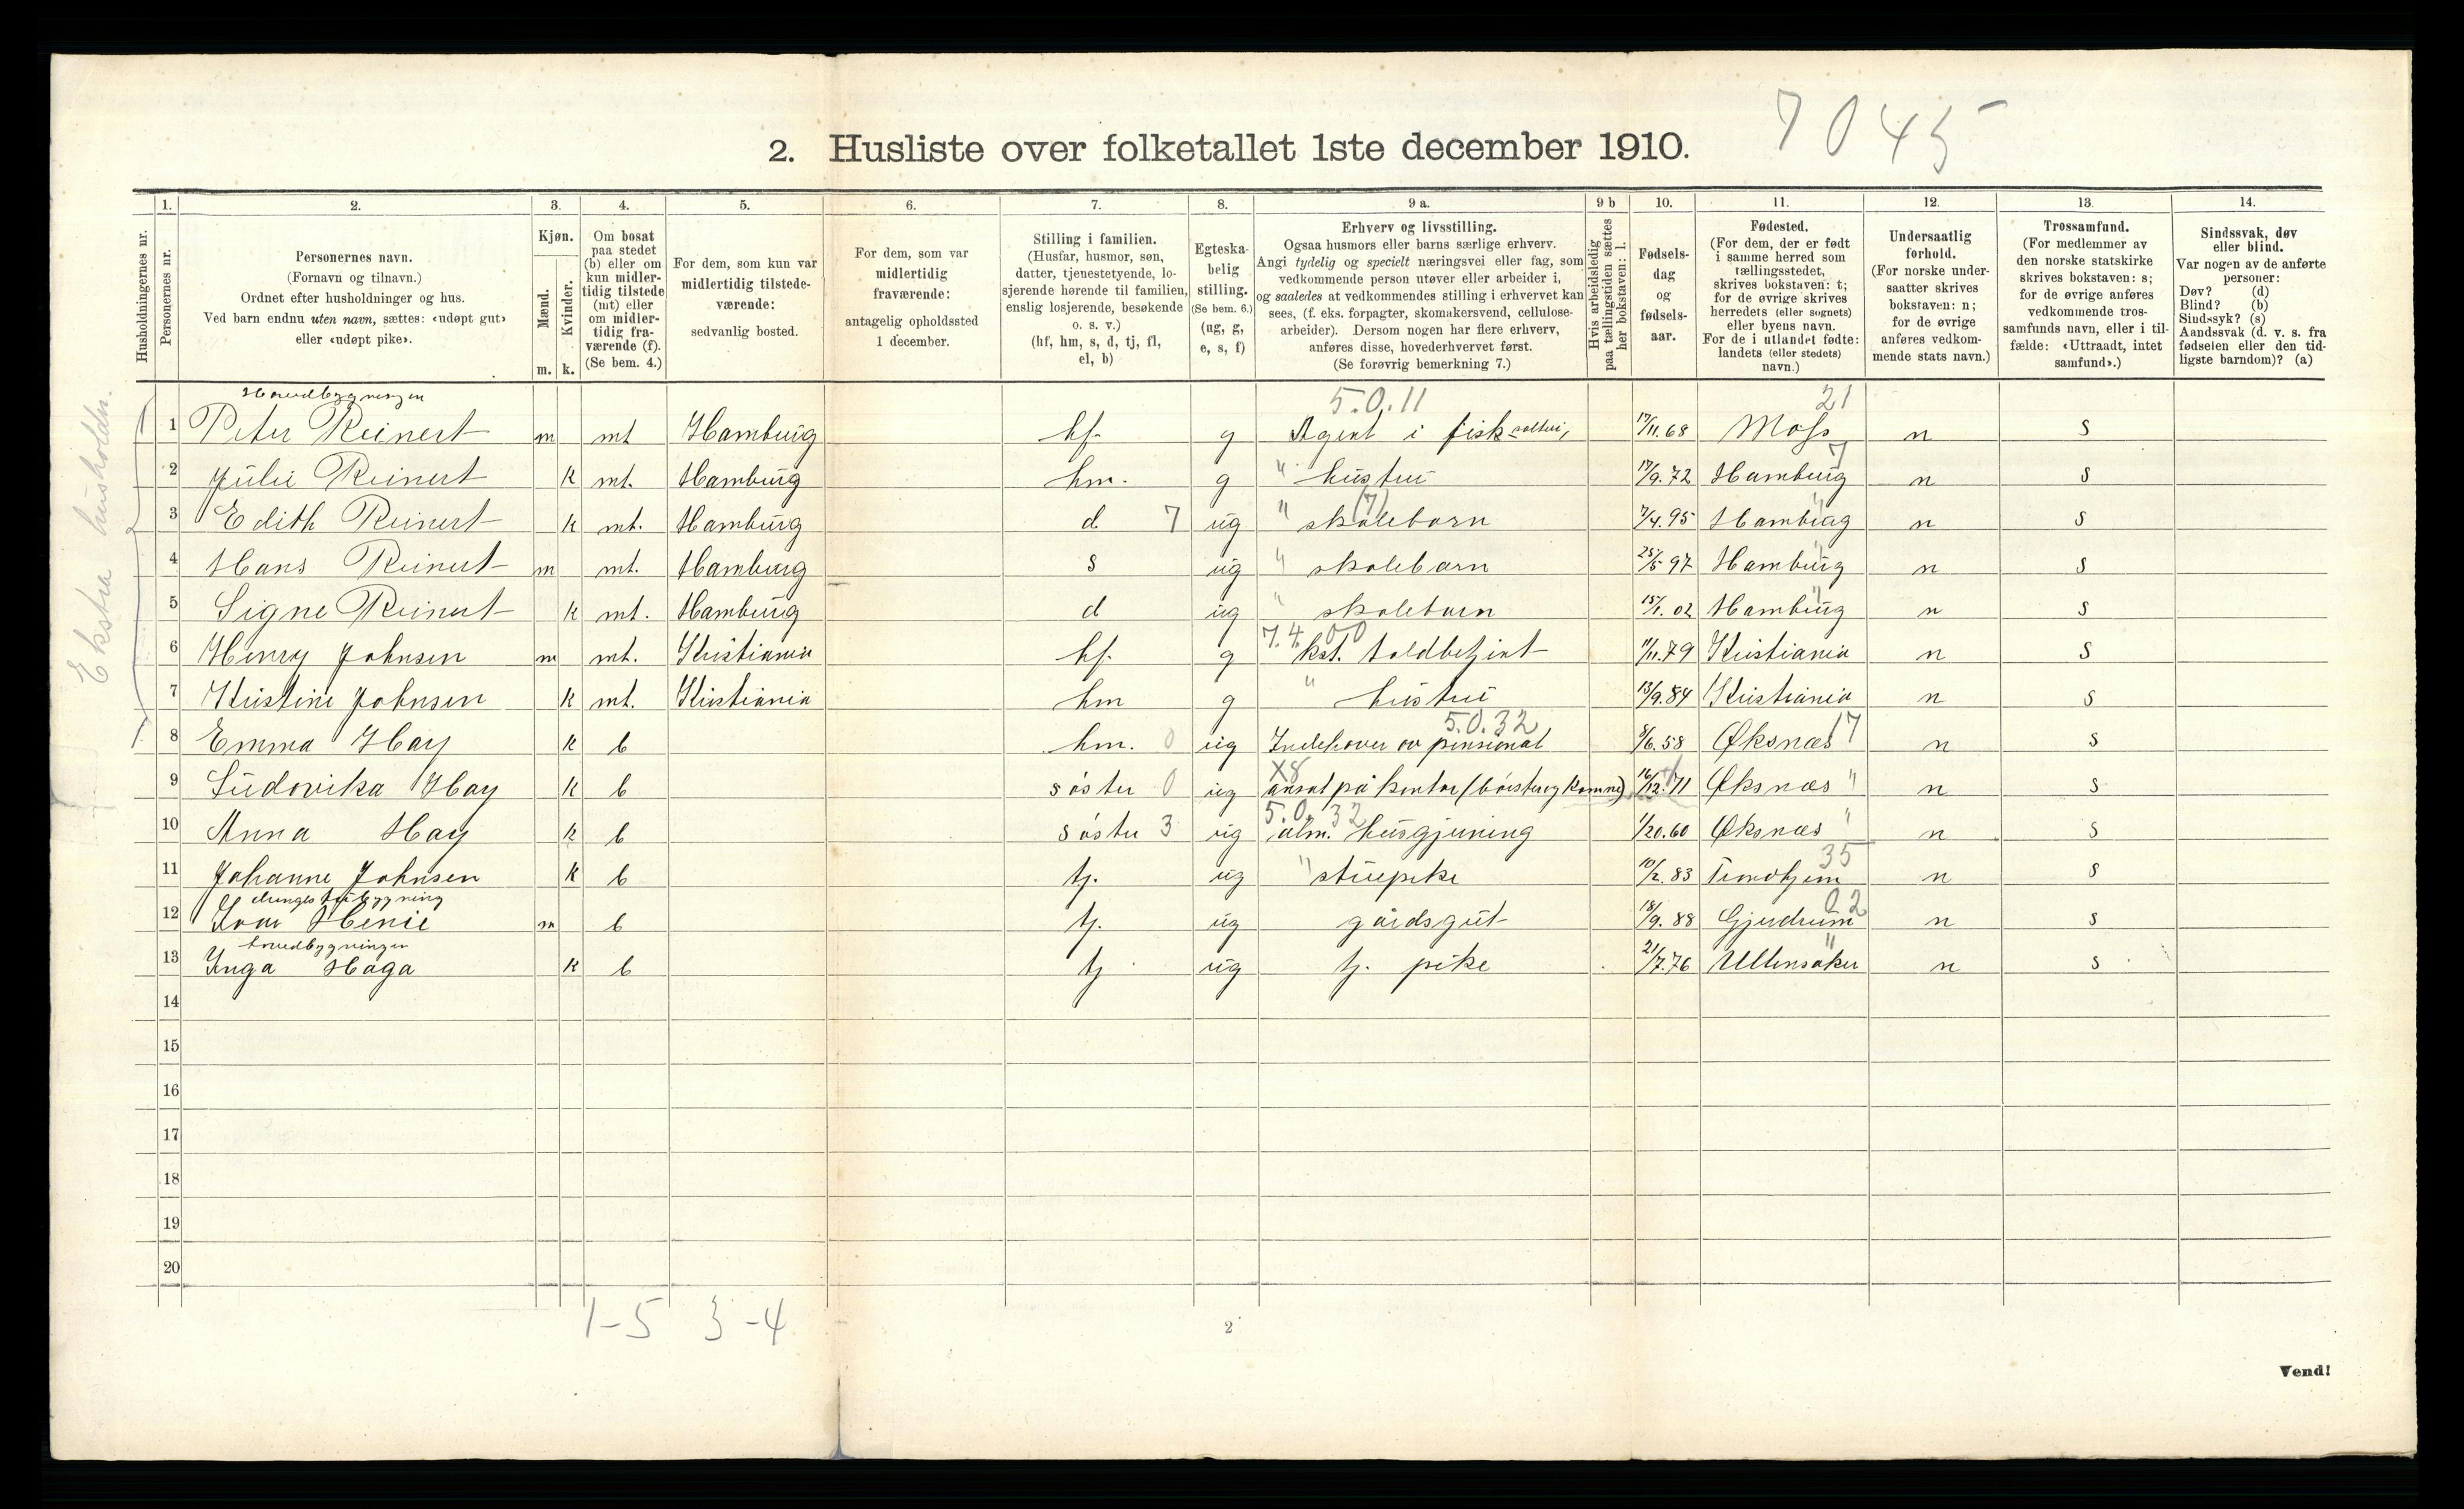 2. Husliste over folketallet 1ste december 1910.
7045
Husholdningernes nr.
1.
Personernes nr.
2.
Personernes navn.
(Fornavn og tilnavn.)
Ordnet efter husholdninger og hus.
Ved barn endnu uten navn, sættes: «udøpt gut»
eller «udøpt pike».
3.
Kjøn.
Mænd.
Kvinder.
m. k.
4.
Om bosat
paa stedet
(b) eller om
kun midler-
tidig tilstede
(mt) eller
om midler-
tidig fra-
værende (f).
(Se bem. 4.)
5.
For dem, som kun var
midlertidig tilstede-
værende:
sedvanlig bosted.
6.
For dem, som var
midlertidig
fraværende:
antagelig opholdssted
1 december.
7.
Stilling i familien.
(Husfar, husmor, søn,
datter, tjenestetyende, lo-
sjerende hørende til familien,
enslig losjerende, besøkende
o. s. v.)
(hf, hm, s, d, tj, fl,
el, b)
8.
Egteska-
belig
stilling.
(Se bem. 6.)
(ug, g,
e, s, f)
9 a.
Erhverv og livsstilling.
Ogsaa husmors eller barns særlige erhverv.
Angi tydelig og specielt næringsvei eller fag, som
vedkommende person utøver eller arbeider i,
og saaledes at vedkommendes stilling i erhvervet kan
sees, (f. eks. forpagter, skomakersvend, cellulose-
arbeider). Dersom nogen har flere erhverv,
anføres disse, hovederhvervet først.
(Se forøvrig bemerkning 7.)
9 b
Hvis arbeidsledig
paa tællingstiden sættes
her bokstaven: l.
10.
Fødsels-
dag
og
fødsels-
aar.
11.
Fødested.
(For dem, der er født
i samme herred som
tællingsstedet,
skrives bokstaven: t;
for de øvrige skrives
herredets (eller sognets)
eller byens navn.
For de i utlandet fødte:
landets (eller stedets)
navn.)
12.
Undersaatlig
forhold.
(For norske under-
saatter skrives
bokstaven: n;
for de øvrige
anføres vedkom-
mende stats navn.)
13.
Trossamfund.
(For medlemmer av
den norske statskirke
skrives bokstaven: s;
for de øvrige anføres
vedkommende tros-
samfunds navn, eller i til-
fælde: «Uttraadt, intet
samfund».)
14.
Sindssvak, døv
eller blind.
Var nogen av de anførte
personer:
Døv? (d)
Blind? (b)
Sindssyk? (s)
Aandssvak (d. v. s. fra
fødselen eller den tid-
ligste barndom)? (a)
Ekstra husholdn.
Hovedbygningen 5.0.11 21
1 Peter Reinert m mt Hamburg hf. g Agent i fisk 17/11.68 Moss n s
7
2 Julie Reinert k mt. Hamburg hm. g " hustru 17/9.72 Hamburg n s
(7) "
3 Edith Reinert k mt. Hamburg d 7 ug " skolebarn 7/4.95 Hamburg n s
"
4 Hans Reinert m mt. Hamburg s ug " skolebarn 25/5 97 Hamburg n s
"
5 Signe Reinert k mt. Hamburg d ug " skolebarn 15/1. 02 Hamburg n s
7.4.00
6 Henry Johnsen m mt. Kristiania hf. g kst. toldbetjent 11/11.79 Kristiania n s
7 Kristine Johnsen k mt. Kristiania hm g " hustru 13/9.84 Kristiania n s
5.0.32 17
8 Emma Hay k b hm. 0 ug Indehaver av pensionat 5/6.58 Øksnæs n s
X8
9 Ludovika Hay k b søster 0 ug ansat på kontor 16/12.71 Øksnæs " n s
5.0.32
10 Anna Hay k b søster 3 ug alm. husgjerning 1/20.60 Øksnæs " n s
35
11 Johanne Johnsen k b tj. ug " stuepike 10/2.83 Trondhjem n s
drengestubygning 02
12 Ivar Henie m b tj. ug gårdsgut 18/9.88 Gjerdrum n s
hovedbygningen "
13 Inga Haga k b tj ug tj. pike 21/7.76 Ullensaker n s
14
15
16
17
18
19
20
1-5 3-4
2
Vend!